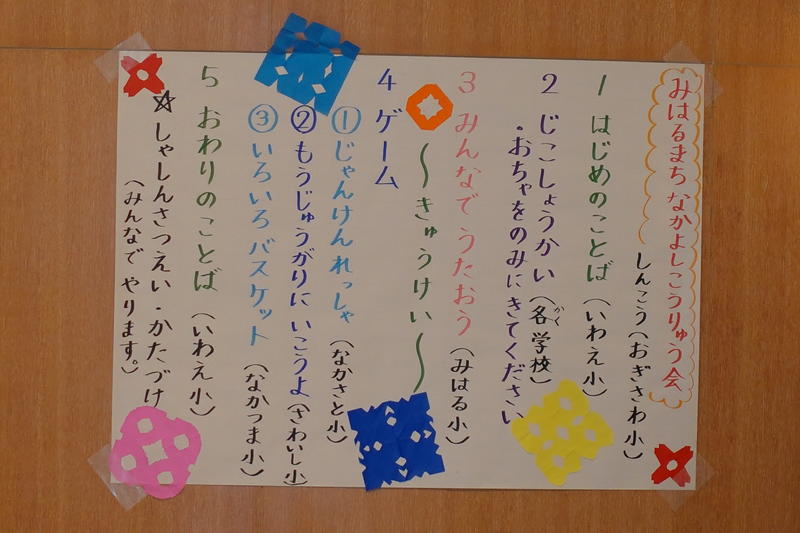 みはるまち なかよしこうりゅう会
しんこう(おぎさわ小)
1 はじめのことば(いわえ小)
2 じこしょうかい(各学校)
かく
・おちゃをのみにきてください
3 みんなで うたおう(みはる小)
〜きゅうけい〜
4 ゲーム
①じゃんけん れっしゃ(なかさと小)
②もうじゅうがりに いこうよ(さわいし小)
③いろいろ バスケット(なかつま小)
5 おわりのことば(いわえ小)
☆しゃしんさつえい・かたづけ
(みんなで やります。)